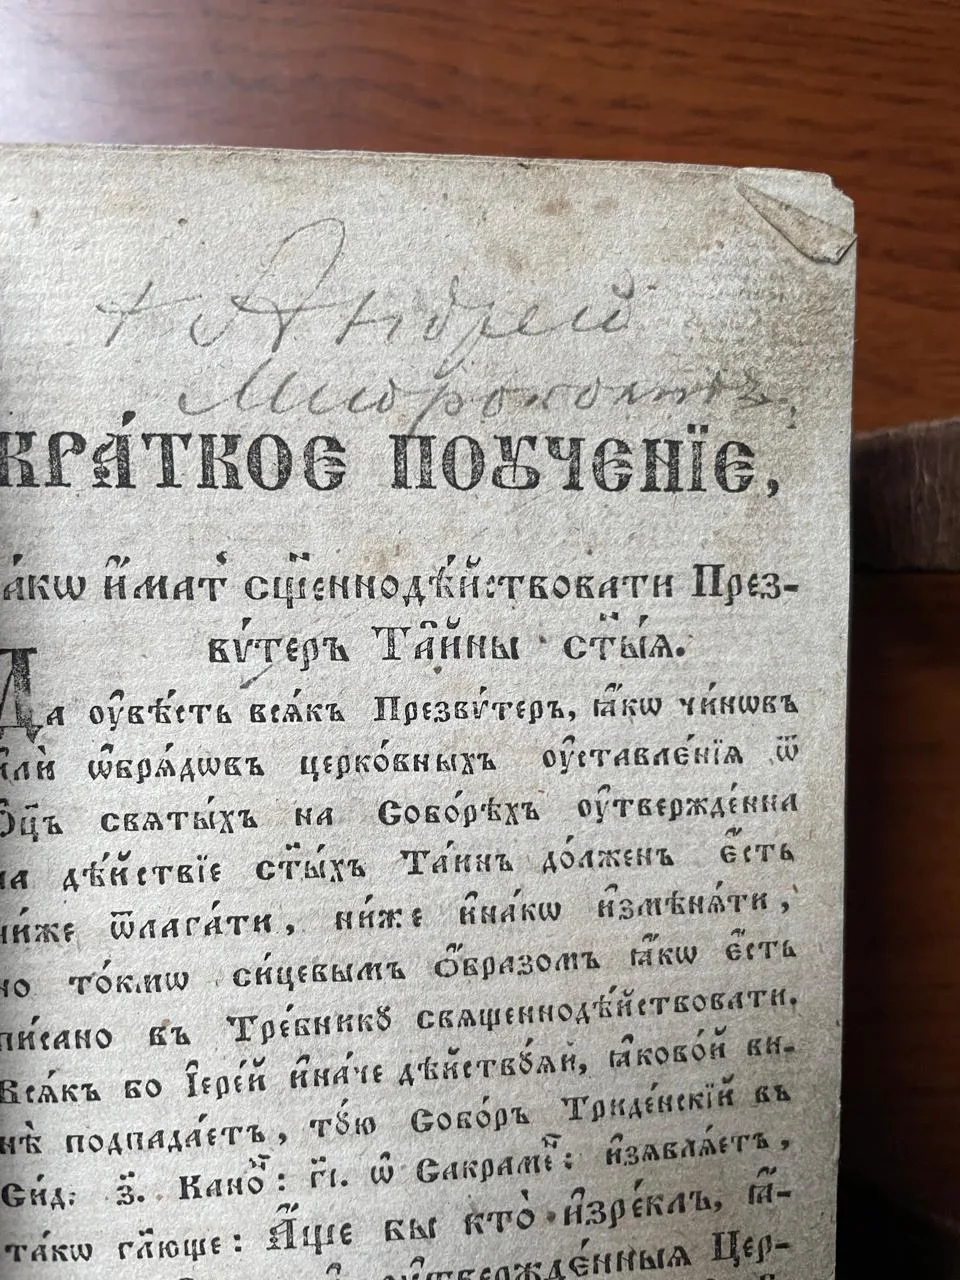 + Андрей
КРА́ТКОЕ ПОꙊЧЕНЇЕ,
а́кѡ и҆́мат̾ сщ҃е́ннодѣ́йствовати През-
вѵ́теръ Та̑йны ст҃ы́ѧ.
Да ᲂу҆вѣ́сть всѧ́къ Презвѵ́теръ, ꙗ҆́кѡ чи́нѡвъ
и҆лѝ ѡ҆брѧ́дѡвъ церко́вныхъ ᲂу҆ставле́нїѧ ѿ
Ѻ҆ц҃ъ свѧты́хъ на Собо́рѣхъ ᲂу҆твержде́нна
на дѣ́йствїе ст҃ы́хъ Та́инъ до́лженъ є҆́сть
ни́же ѿлага́ти, ни́же и҆на́кѡ и҆змѣнѧ́ти,
но то́кмѡ си́цевымъ ѻ҆́бразомъ ꙗ҆́кѡ є҆́сть
пи́сано въ Тре́бникꙋ свѧщеннодѣ́йствовати.
Всѧ́къ бо І҆ере́й и҆на́че дѣ́йствꙋѧй, ꙗ҆ково́й ви-
нѣ̀ подпада́етъ, тꙋ́ю Собо́ръ Триде́нскїй въ
Си́д: з҃. Кано́н: г҃і. ѡ҆ Сакраме́н: и҆з̾ѧвлѧ́етъ,
та́кѡ гл҃юще: А҆́ще бы кто̀ и҆зре́клъ, ꙗ҆́-
ᲂу҆твержде́нныѧ Цер-